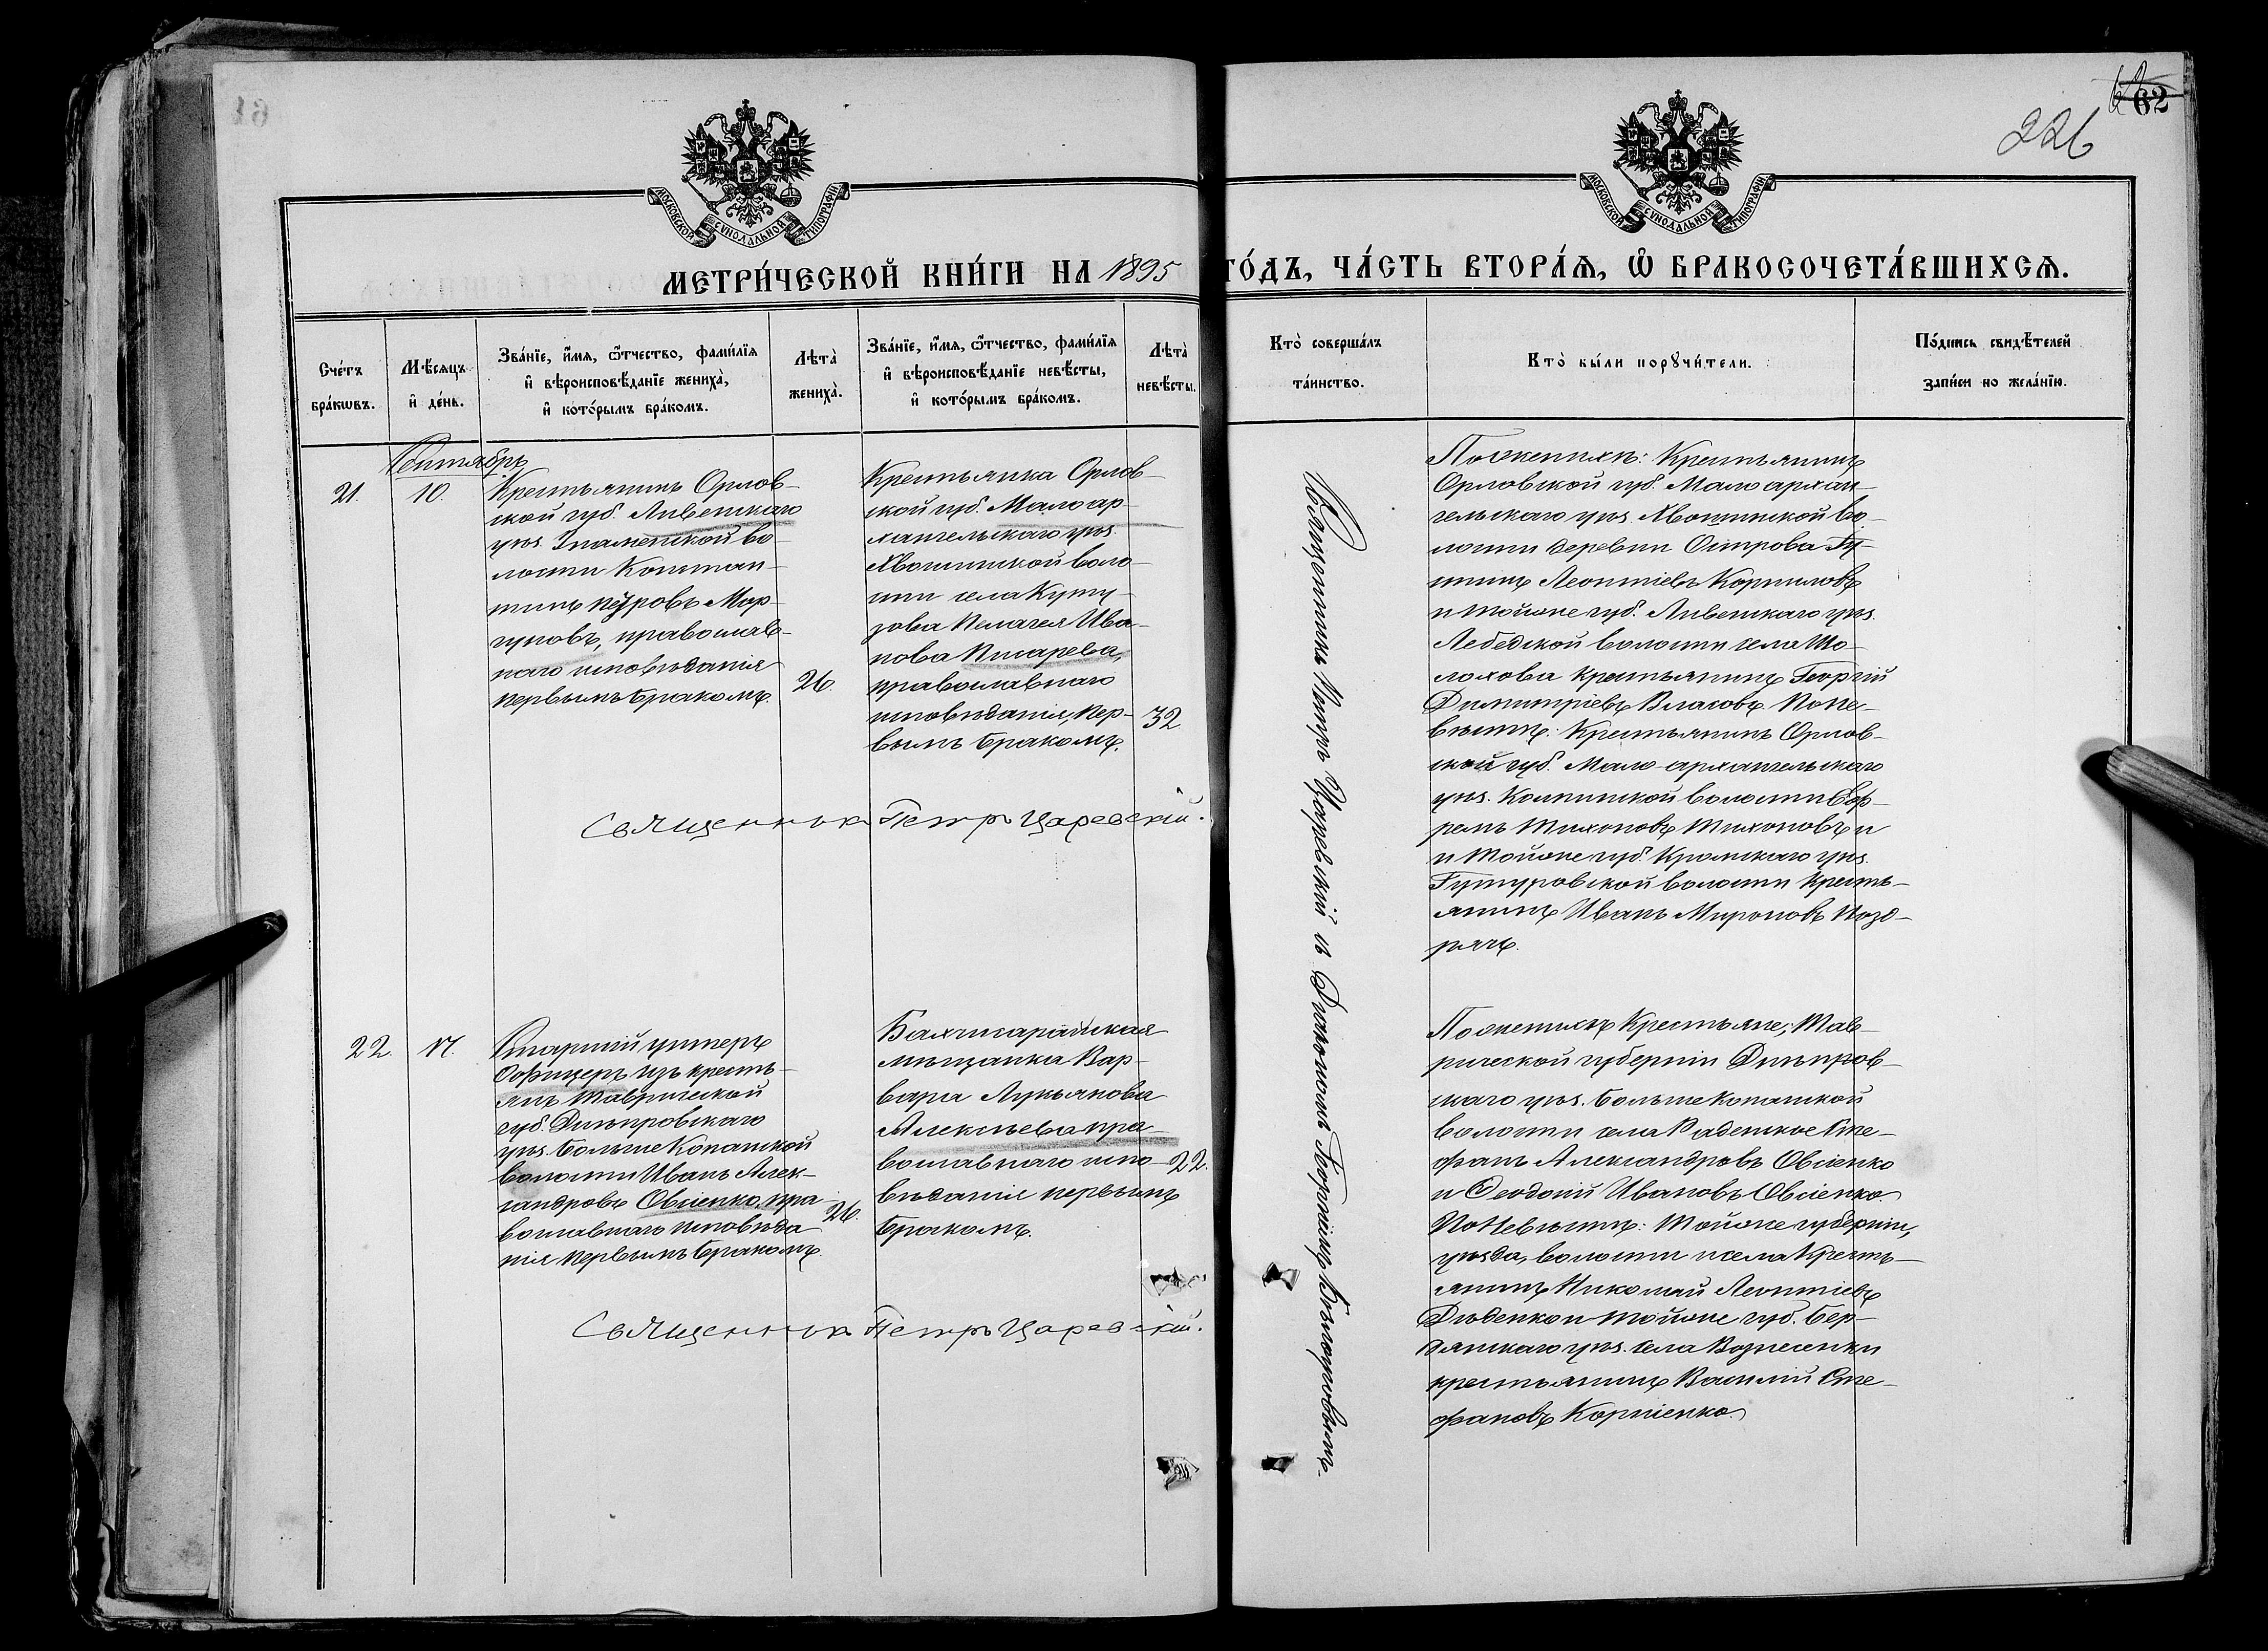 62
226
МОСКОВСКОЙ СѴНОДАЛЬНОЙ ТИПОГРАФІИ
МОСКОВСКОЙ СѴНОДАЛЬНОЙ ТИПОГРАФІИ
МЕТРИ́ЧЕСКОЙ КНИ́ГИ НА 1895 ГО́ДЪ, ЧА́СТЬ ВТОРА́Ѧ, Ѽ БРАКОСОЧЕТА́ВШИХСѦ.
Сче́тъ
бра́кѡвъ.
Мѣ́сяцъ
и҆ де́нь.
Зва́нїе, и҆́мѧ, ѻ҆́тчество, фами́лїѧ
и҆ вѣроисповѣ́данїе жениха̀,
и҆ кото́рымъ бра́комъ.
Лѣта̀
жениха̀.
Зва́нїе, и҆́мѧ, ѻ҆́тчество, фами́лїѧ
и҆ вѣроисповѣ́данїе невѣ́сты,
и҆ кото́рымъ бра́комъ.
Лѣта̀
невѣ́сты.
Кто̀ соверша́лъ
та́инство.
Кто̀ бы́ли порꙋчи́тели.
По́дпись свидѣ́телей
за́писи по жела́нїю.
Сентябрь
21.
10.
Крестьянинъ Орлов-
ской губ. Ливенскаго
уѣз. Знаменской во-
лости Констан-
тинъ Петровъ Мор-
гуновъ, православ-
наго исповѣданія
первымъ бракомъ.
26.
Крестьянка Орлов-
ской губ. Малоар-
хангельскаго уѣз.
Хвощинской воло-
сти села Куту-
зова Пелагея Ива-
нова Писарева,
православнаго
исповѣданія, пер-
вымъ бракомъ.
32
Священникъ Петръ Царевскій.
Священникъ Петръ Царевскій съ Діакономъ Георгіемъ
По женихѣ: Крестьянинъ
Орловской губ. Мало архан-
гельскаго уѣз. Хвощинской во-
лости деревни Острова
Леонтіевъ Корниловъ
и той же губ. Ливенскаго уѣз.
Лебедской волости села Шо-
лохова крестьянинъ Георгій
Димитріевъ Власовъ. По не-
вѣстѣ: Крестьянинъ Орлов-
ской губ. Мало-архангельскаго
уѣз. Колпинской волости Еф-
ремъ Тихоновъ Тихоновъ и
и той же губ. Кромскаго уѣз.
Гутуровской волости кресть-
янинъ Иванъ Мироновъ Нозд-
рячъ.
22.
17.
Старшій унтеръ
Офицеръ изъ кресть-
янъ Таврической
губ. Днѣпровскаго
уѣз. Больше Копанской
волости Иванъ Алек-
сандровъ Овсіенко, пра-
вославнаго исповѣда
нія первымъ бракомъ.
26.
Бахчисарайская
мѣщанка Вар-
вара Лукьянова
Алексѣева пра-
вославнаго испо-
вѣданія первымъ
бракомъ.
22.
Священникъ Петръ Царевскій.
По женихѣ Крестьяне; Тав-
рической губерніи Днѣпров-
скаго уѣз. Больше Копанской
волости села Раденское Сте-
фанъ Александровъ Овсіенко
и Ѳеодосій Ивановъ Овсіенко.
По Невѣстѣ: Той же губерніи,
уѣзда, волости и села Кресть-
янинъ Николай Леонтіевъ
Дѣденко и той же губ. Бер-
дянскаго уѣз. села Вознесенки
крестьянинъ Василій Сте-
фановъ Корніенко.